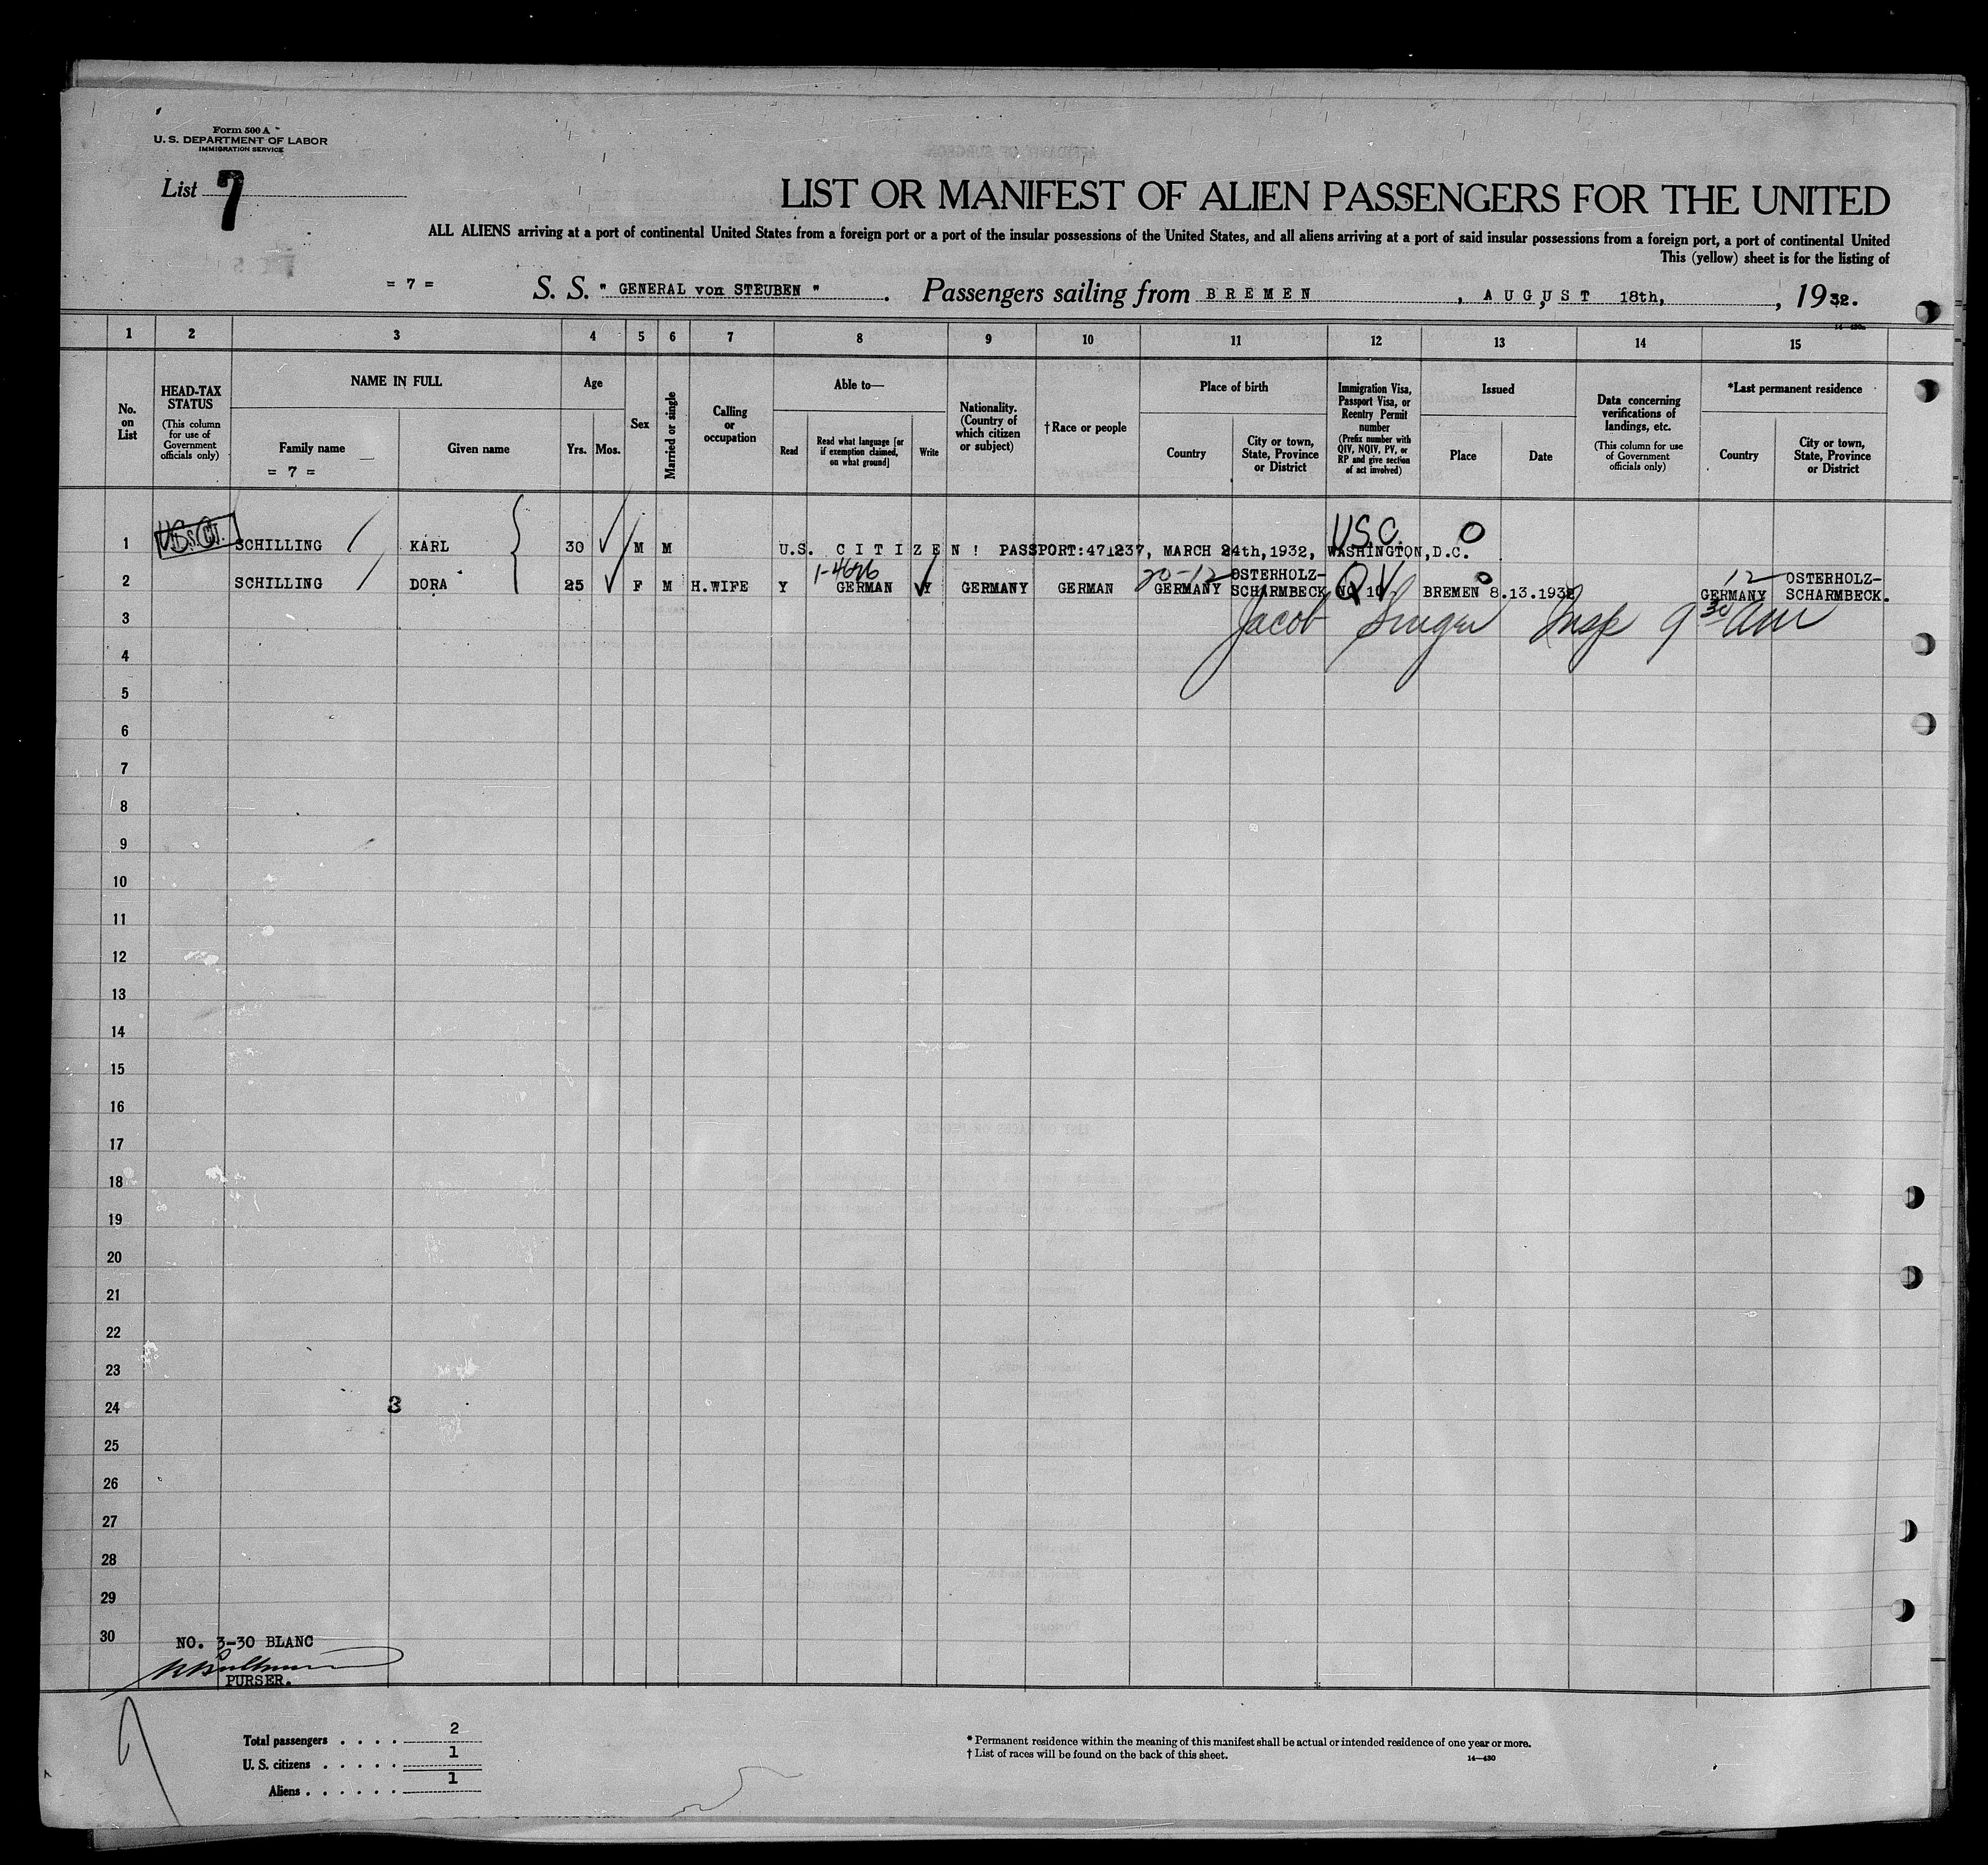 Form 500 A
U. S. DEPARTMENT OF LABOR
IMMIGRATION SERVICE
List 7
LIST OR MANIFEST OF ALIEN PASSENGERS FOR THE UNITED
ALL ALIENS arriving at a port of continental United States from a foreign port or a port of the insular possessions of the United States, and all aliens arriving at a port of said insular possessions from a foreign port, a port of continental United
This (yellow) sheet is for the listing of
= 7 = S. S. " GENERAL von STEUBEN ". Passengers sailing from BREMEN, AUGUST 18th, , 1932.
14—430a
1 2 3 4 5 6 7 8 9 10 11 12 13 14 15
No. on List
HEAD-TAX STATUS
(This column for use of Government officials only)
NAME IN FULL
Family name
= 7 =
Given name
Age
Yrs. Mos.
Sex
Married or single
Calling or occupation
Able to—
Read
Read what language [or if exemption claimed, on what ground]
Write
Nationality. (Country of which citizen or subject)
† Race or people
Place of birth
Country
City or town, State, Province or District
Immigration Visa, Passport Visa, or Reentry Permit number
(Prefix number with QIV, NQIV, PV, or RP and give section of act involved)
Issued
Place
Date
Data concerning verifications of landings, etc.
(This column for use of Government officials only)
*Last permanent residence
Country
City or town, State, Province or District
U.S.C. 0
1 SCHILLING KARL 30 M M U.S. CITIZEN! PASSPORT:471237, MARCH 24th,1932, WASHINGTON,D.C.
1-4676 20-12 OSTERHOLZ- QV 0 12 OSTERHOLZ-
2 SCHILLING DORA 25 F M H.WIFE Y GERMAN Y GERMANY GERMAN GERMANY SCHARMBECK NO 10 BREMEN 8.13.1932 GERMANY SCHARMBECK.
3 Jacob Singer Insp 9 30 am
4
5
6
7
8
9
10
11
12
13
14
15
16
17
18
19
20
21
22
23
24 3
25
26
27
28
29
30 NO. 3-30 BLANC
PURSER.
Total passengers . . . . 2
U. S. citizens . . . . . 1
Aliens . . . . . . 1
* Permanent residence within the meaning of this manifest shall be actual or intended residence of one year or more.
† List of races will be found on the back of this sheet. 14—430